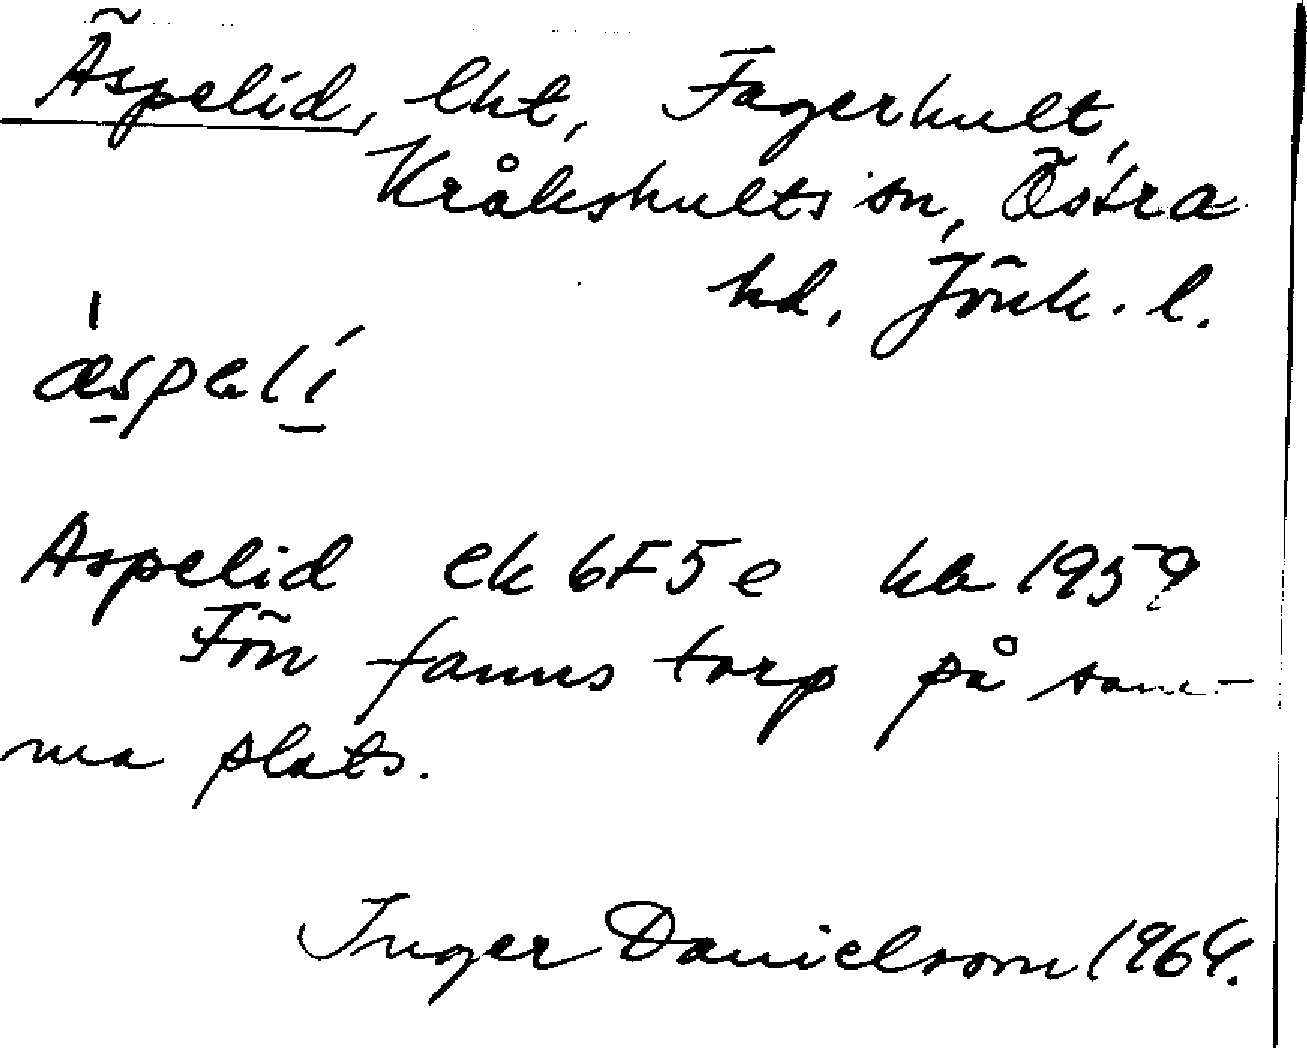 Äspelid, lht, Fagerhult,
Kråkshults sn, Östra
hd. Jönk. l.
æ̀spəlí
Aspelid ek 6F5e ka 1959
Förr fanns torp på sam-
ma plats.
Inger Danielsson 1964.